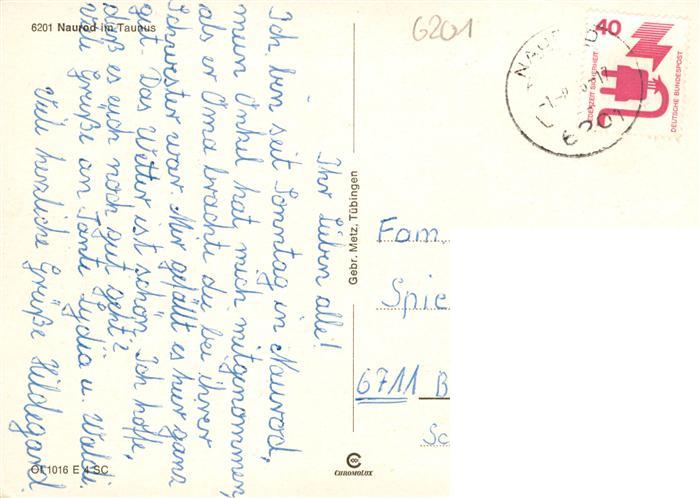 6201 Naurod im Taunus
6201
Ihr lieben alle!
Ich bin seit Sonntag in Naurod,
mein Onkel hat mich mitgenommen,
als er Oma brachte die bei ihrer
Schwester war. Mir gefällt es hier ganz
gut. Das Wetter ist schön. Ich hoffe,
daß es euch noch gut geht?
Viele Grüße an Tante Lydia u. Waldi.
Viele herzliche Grüße Hildegard
OI 1016 E 4 SC
Gebr. Metz, Tübingen
CHROMOLUX
40
JEDERZEIT SICHERHEIT
DEUTSCHE BUNDESPOST
6201
Fam.
Spie
6711 B
Sc